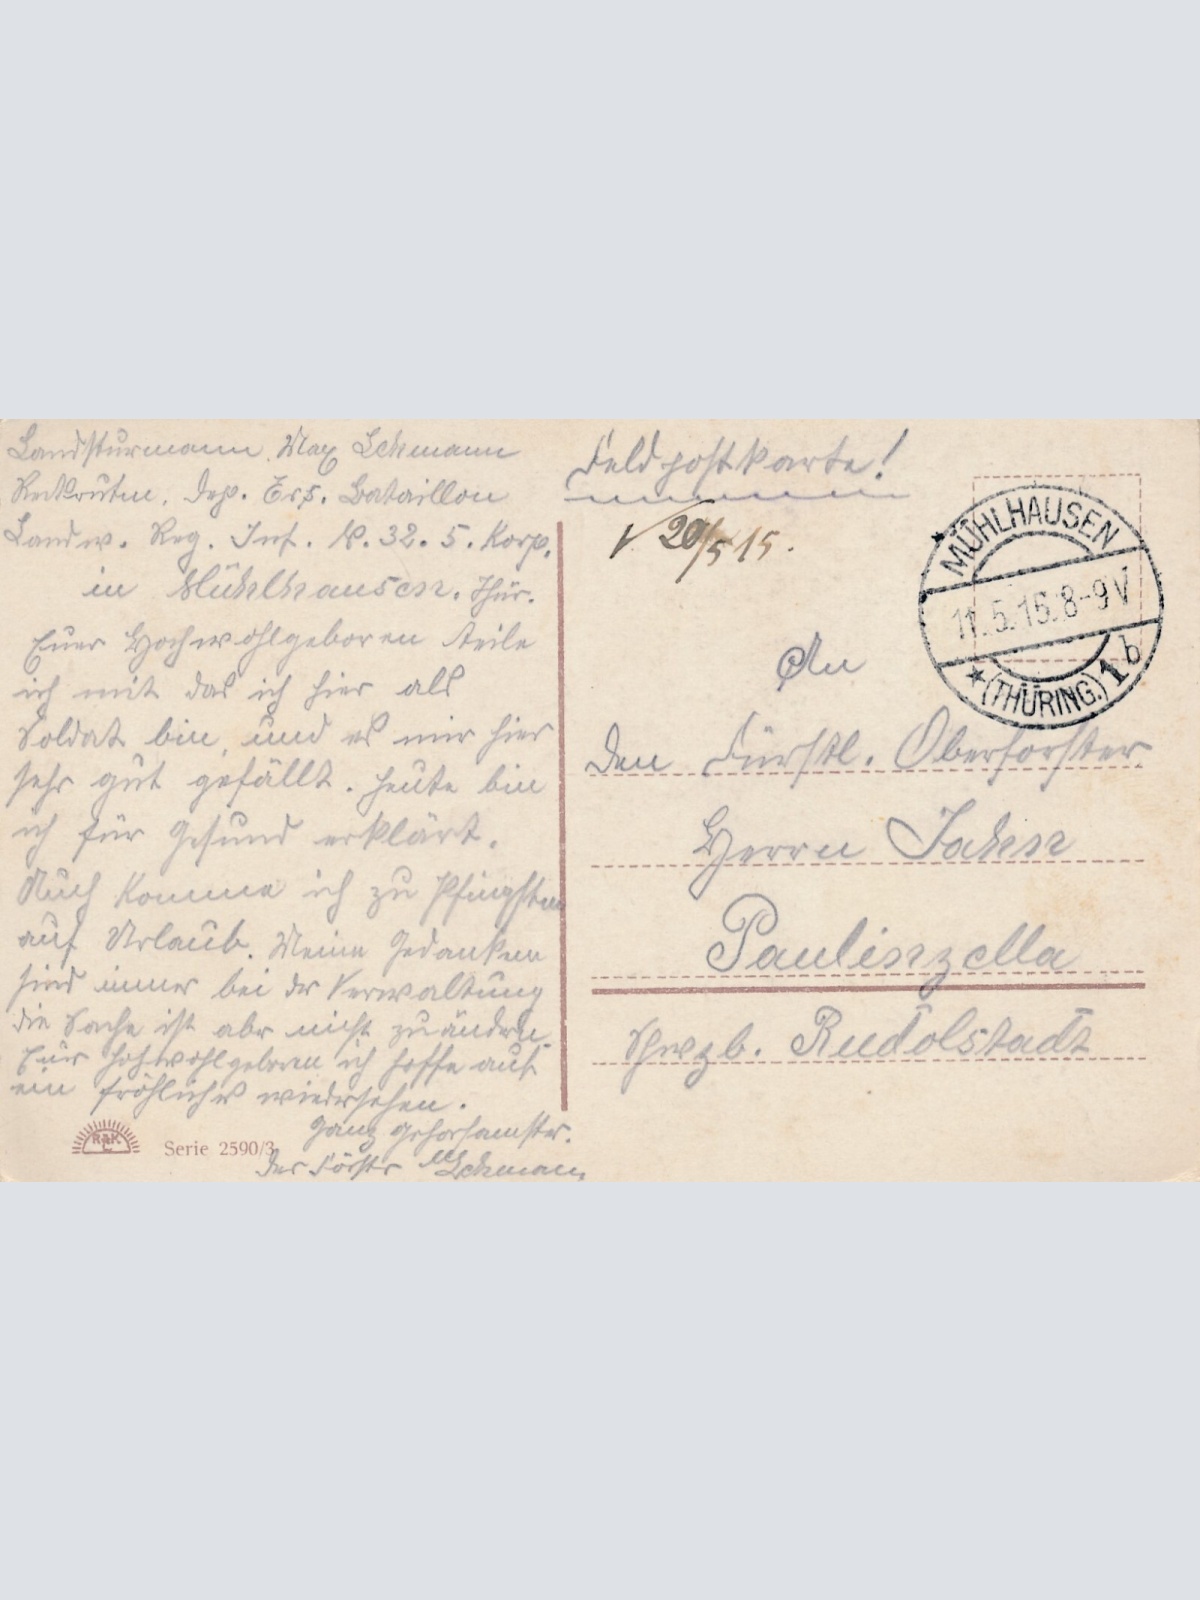 Landsturmann. Max Lehmann
Rekruten. Dep. Ers. Bataillon
Landw. Reg. Inf. N. 32. 5. Korp.
in Mühlhausen. Thür.
Euer Hochwohlgeboren teile
ich mit das ich hier als
Soldat bin, und es mir hier
sehr gut gefällt. heute bin
ich für Gesund erklärt.
Auch komme ich zu Pfingsten
auf Urlaub. Meine Gedanken
sind immer bei der Verwaltung
die Sache ist aber nicht zuändern.
Eur hohwohlgeboren ich hoffe auf
ein fröhliches wiedersehen.
Ganz gehorsamster.
Der Förster M Lehmann
R&K.
L
Serie 2590/3
Feldpostkarte!
20/5 15.
MÜHLHAUSEN
11.5.15.8-9V
(THÜRING.) 1b
An
den Fürstl. Oberforster
Herrn Jahn
Paulinzella
Schwzb. Rudolstadt